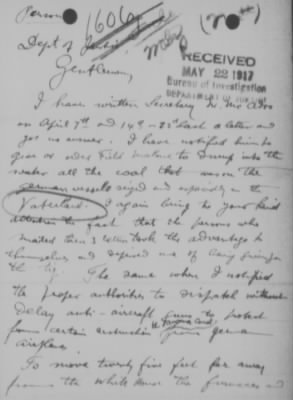 Person
1606
Dept of Justice
RECEIVED
MAY 22 1917
Bureau of Investigation
DEPARTMENT OF JUSTICE
Gentlemen
I have written Secretary Mc Adoo
on April 7th and 14th - 21st last a letter and
got no answer. I have notified him to
give or order to Dump into the
water all the coal that was on the
german vessels seized and especially on the
Vaterland. I again bring to your kind
attention the fact that the persons who
mailed them took the advantage to
themselves and me of being
the The same when I notified
the proper authorities to dispatch without
delay anti-aircraft guns to protect
from certain destruction from german
airplanes.
To move twenty five feet far away
from the White House the furnaces and